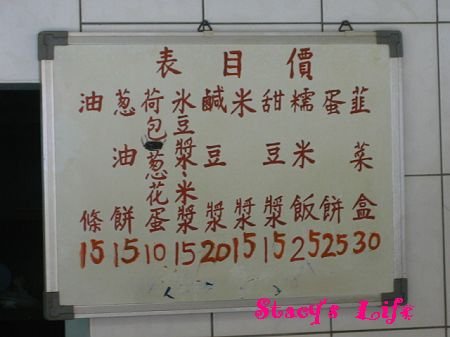 價目表
韭菜盒 30
蛋餅 25
糯米飯 25
甜豆漿 15
米漿 15
鹹豆漿 20
氷豆漿、米漿 15
荷包葱花蛋 10
葱油餅 15
油條 15
Stacy's Life